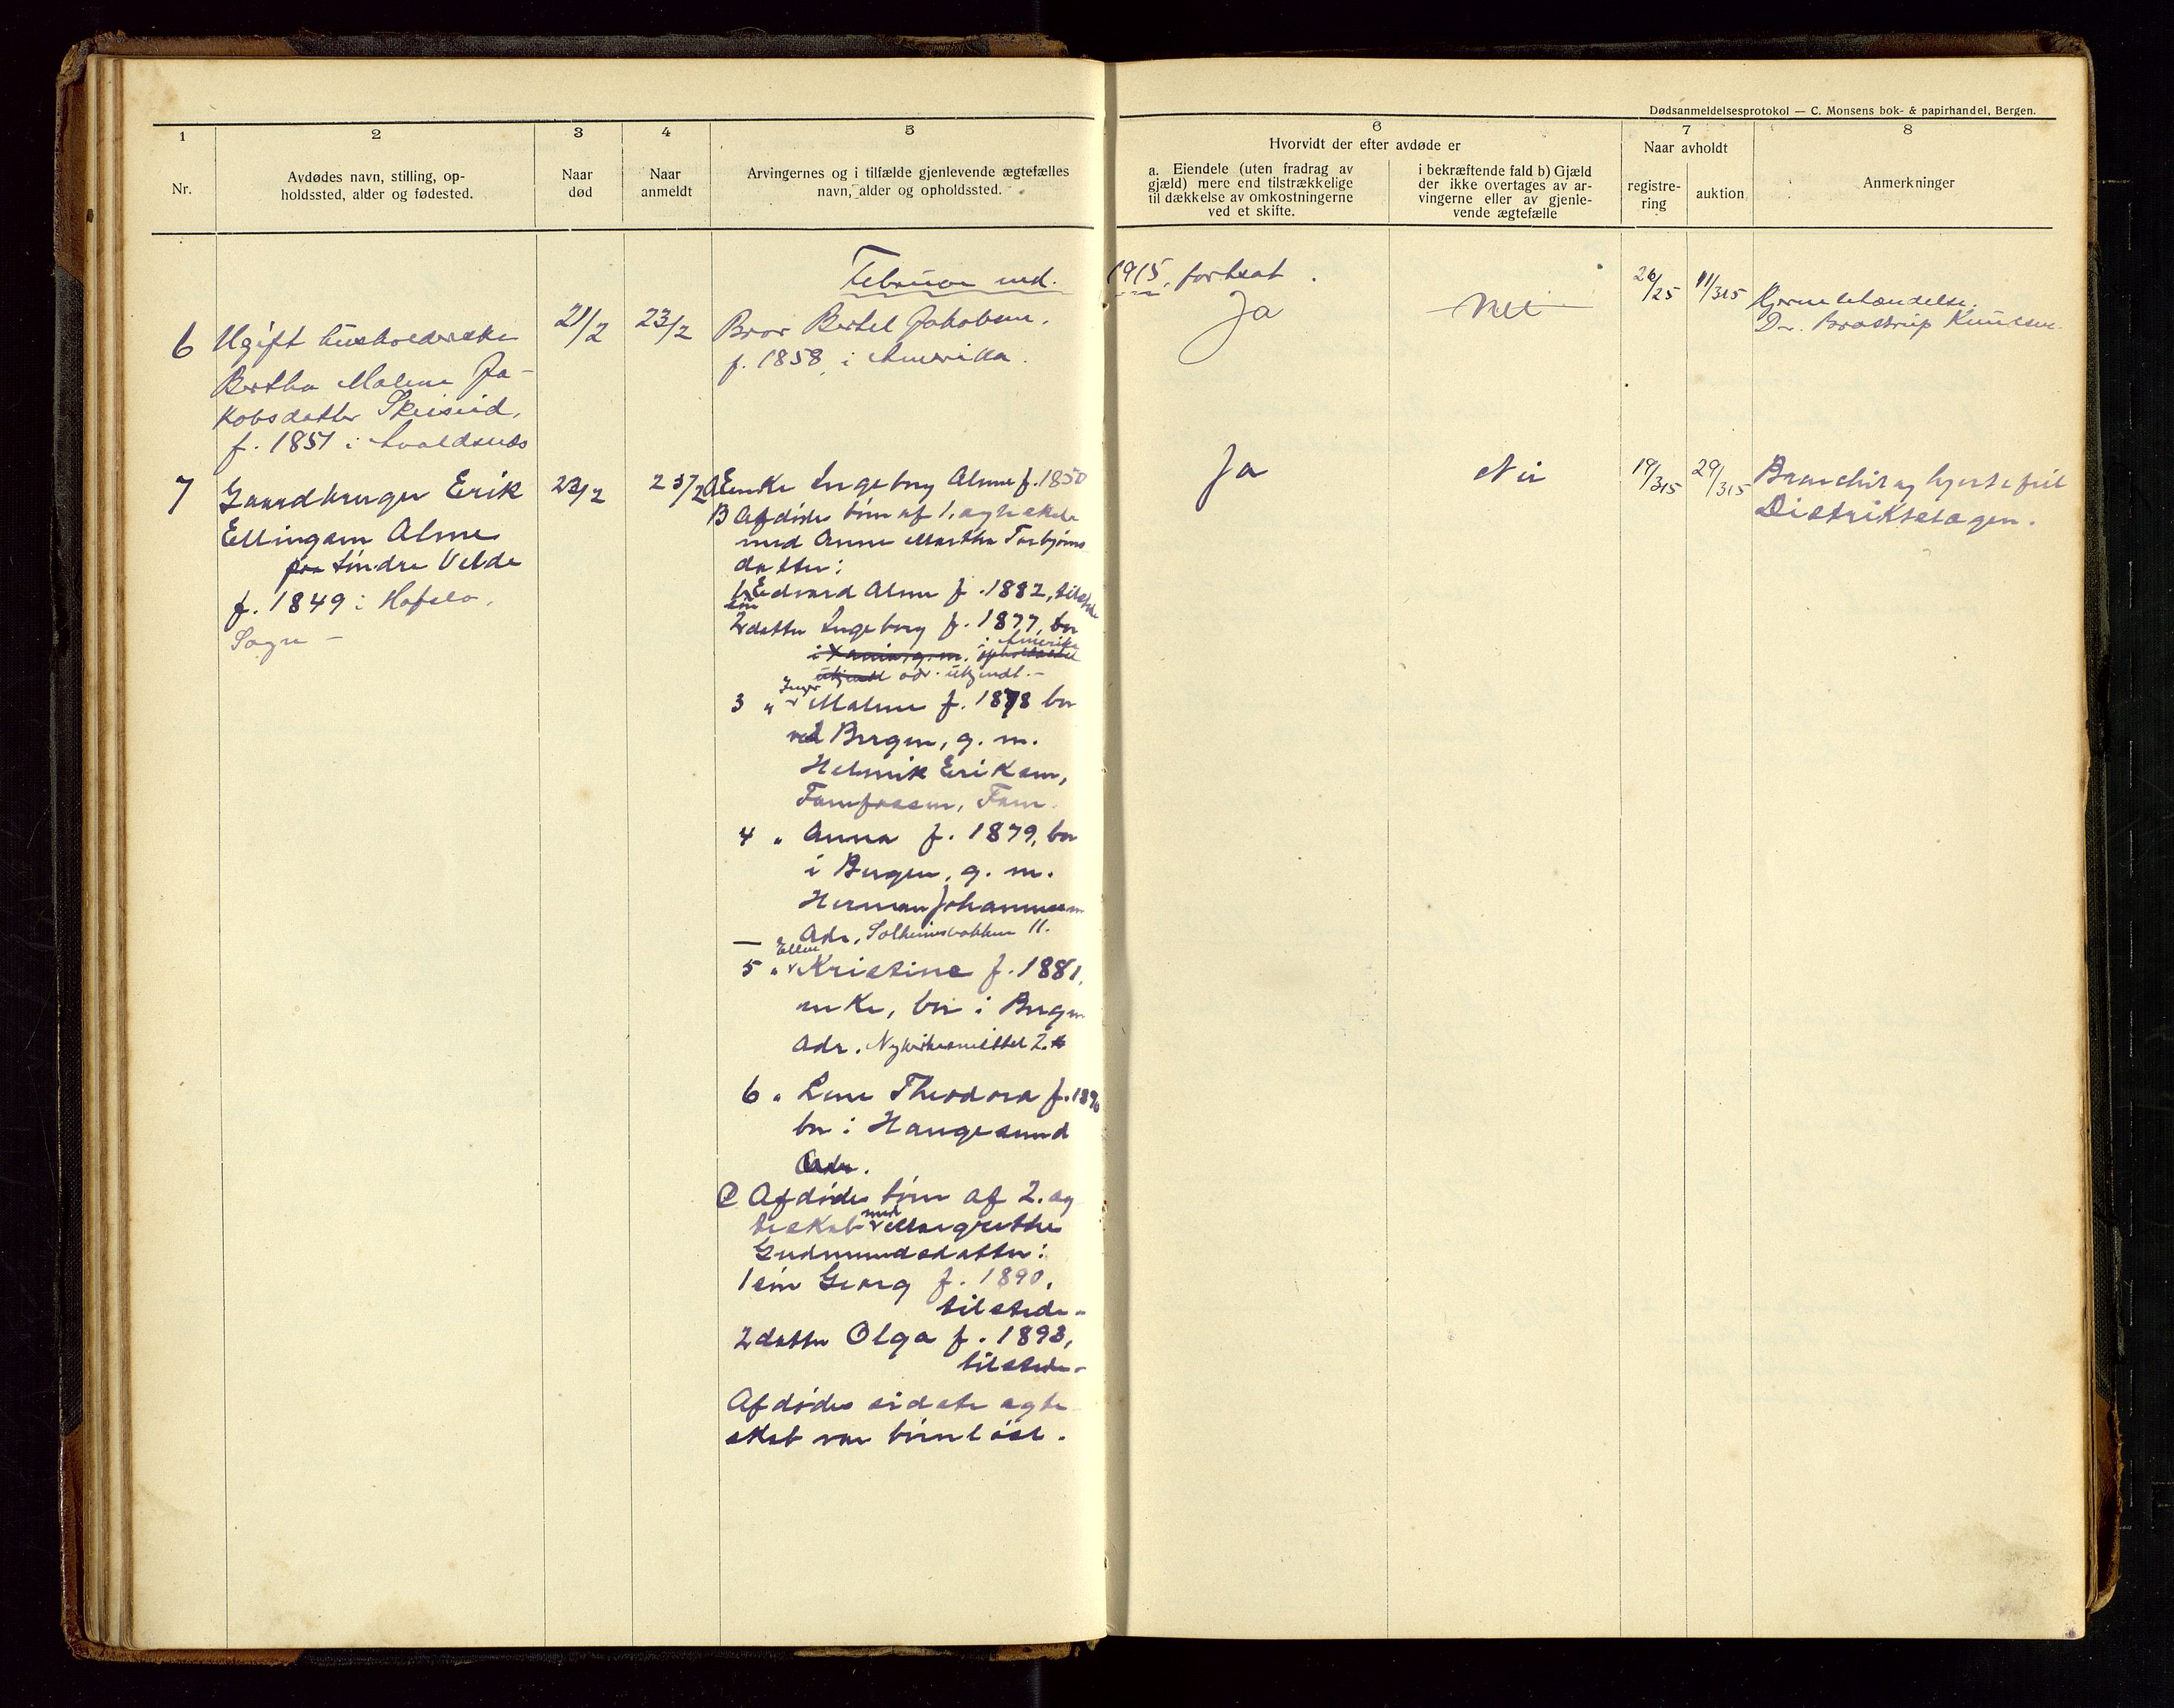 Dødsanmeldelsesprotokol — C. Monsens bok- & papirhandel, Bergen.
1 2 3 4 5 6 7 8
Nr.
Avdødes navn, stilling, op-
holdssted, alder og fødested.
Naar
død
Naar
anmeldt
Arvingernes og i tilfælde gjenlevende ægtefælles
navn, alder og opholdssted.
Hvorvidt der efter avdøde er
a. Eiendele (uten fradrag av
gjæld) mere end tilstrækkelige
til dækkelse av omkostningerne
ved et skifte.
i bekræftende fald b) Gjæld
der ikke overtages av ar-
vingerne eller av gjenle-
vende ægtefælle
Naar avholdt
registre-
ring
auktion
Anmerkninger
Februar md. 1915, fortsat.
6
Ugift husholderske
Bertha Malene Ja-
kobsdatter
f. 1851 i Avaldsnes
21/2
23/2
Bror Bertel Jakobsen,
f. 1858, i Amerika.
Ja
Nei
11/3 15
Dr. Brostrup
7
Gaardbruger Erik
Ellingsen Alme
paa søndre Velde
f. 1849 i Hafslo,
Sogn -
23/2
23/2
A Enke Ingeborg Alme f. 1850
B Afdødes børn af 1. ægteskab
med Anne Martha Torbjørns-
datter:
1 søn Edvard Alme f. 1882, tilstede
2 datter Ingeborg f. 1877, bor
i Amerika
adr. ukjendt. -
3 " Inger Malene f. 1878 bor
ved Bergen, g. m.
Helmik Eriksen,
4 " Anna f. 1879, bor
i Bergen, g. m.
Herman Johannessen
Adr. Solheimsbakken 11.
5 " Ellen Kristine f. 1881,
enke, bor i Bergen
Adr. Nykirkesmuttet 2.
6 " Lene Theodora f. 1890
bor i Haugesund
Adr.
C Afdødes børn af 2. æg-
teskab med Margrethe
Gudmundsdatter:
1 søn Georg f. 1890,
tilstede -
2 datter Olga f. 1893,
tilstede -
Afdødes sidste ægte-
skab var børnløst.
Ja
Nei
19/3 15
29/3 15
Distriktslægen.